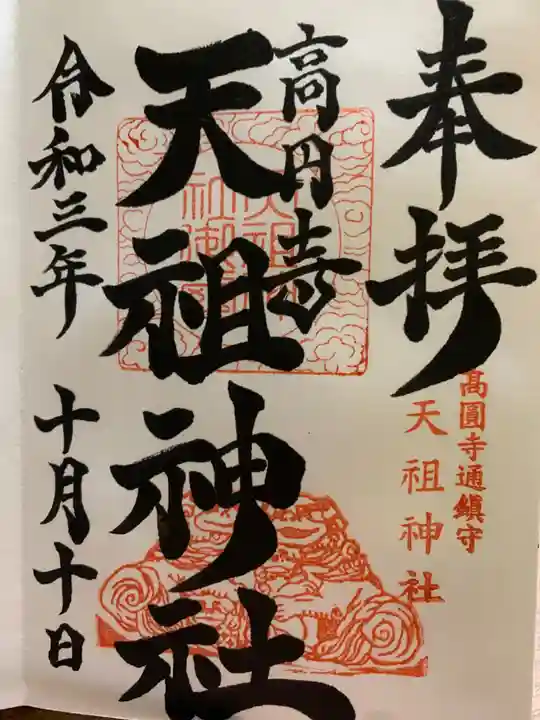 奉拝
髙圓寺通鎮守
天祖神社
高円寺
天祖神社
令和三年 十月十日